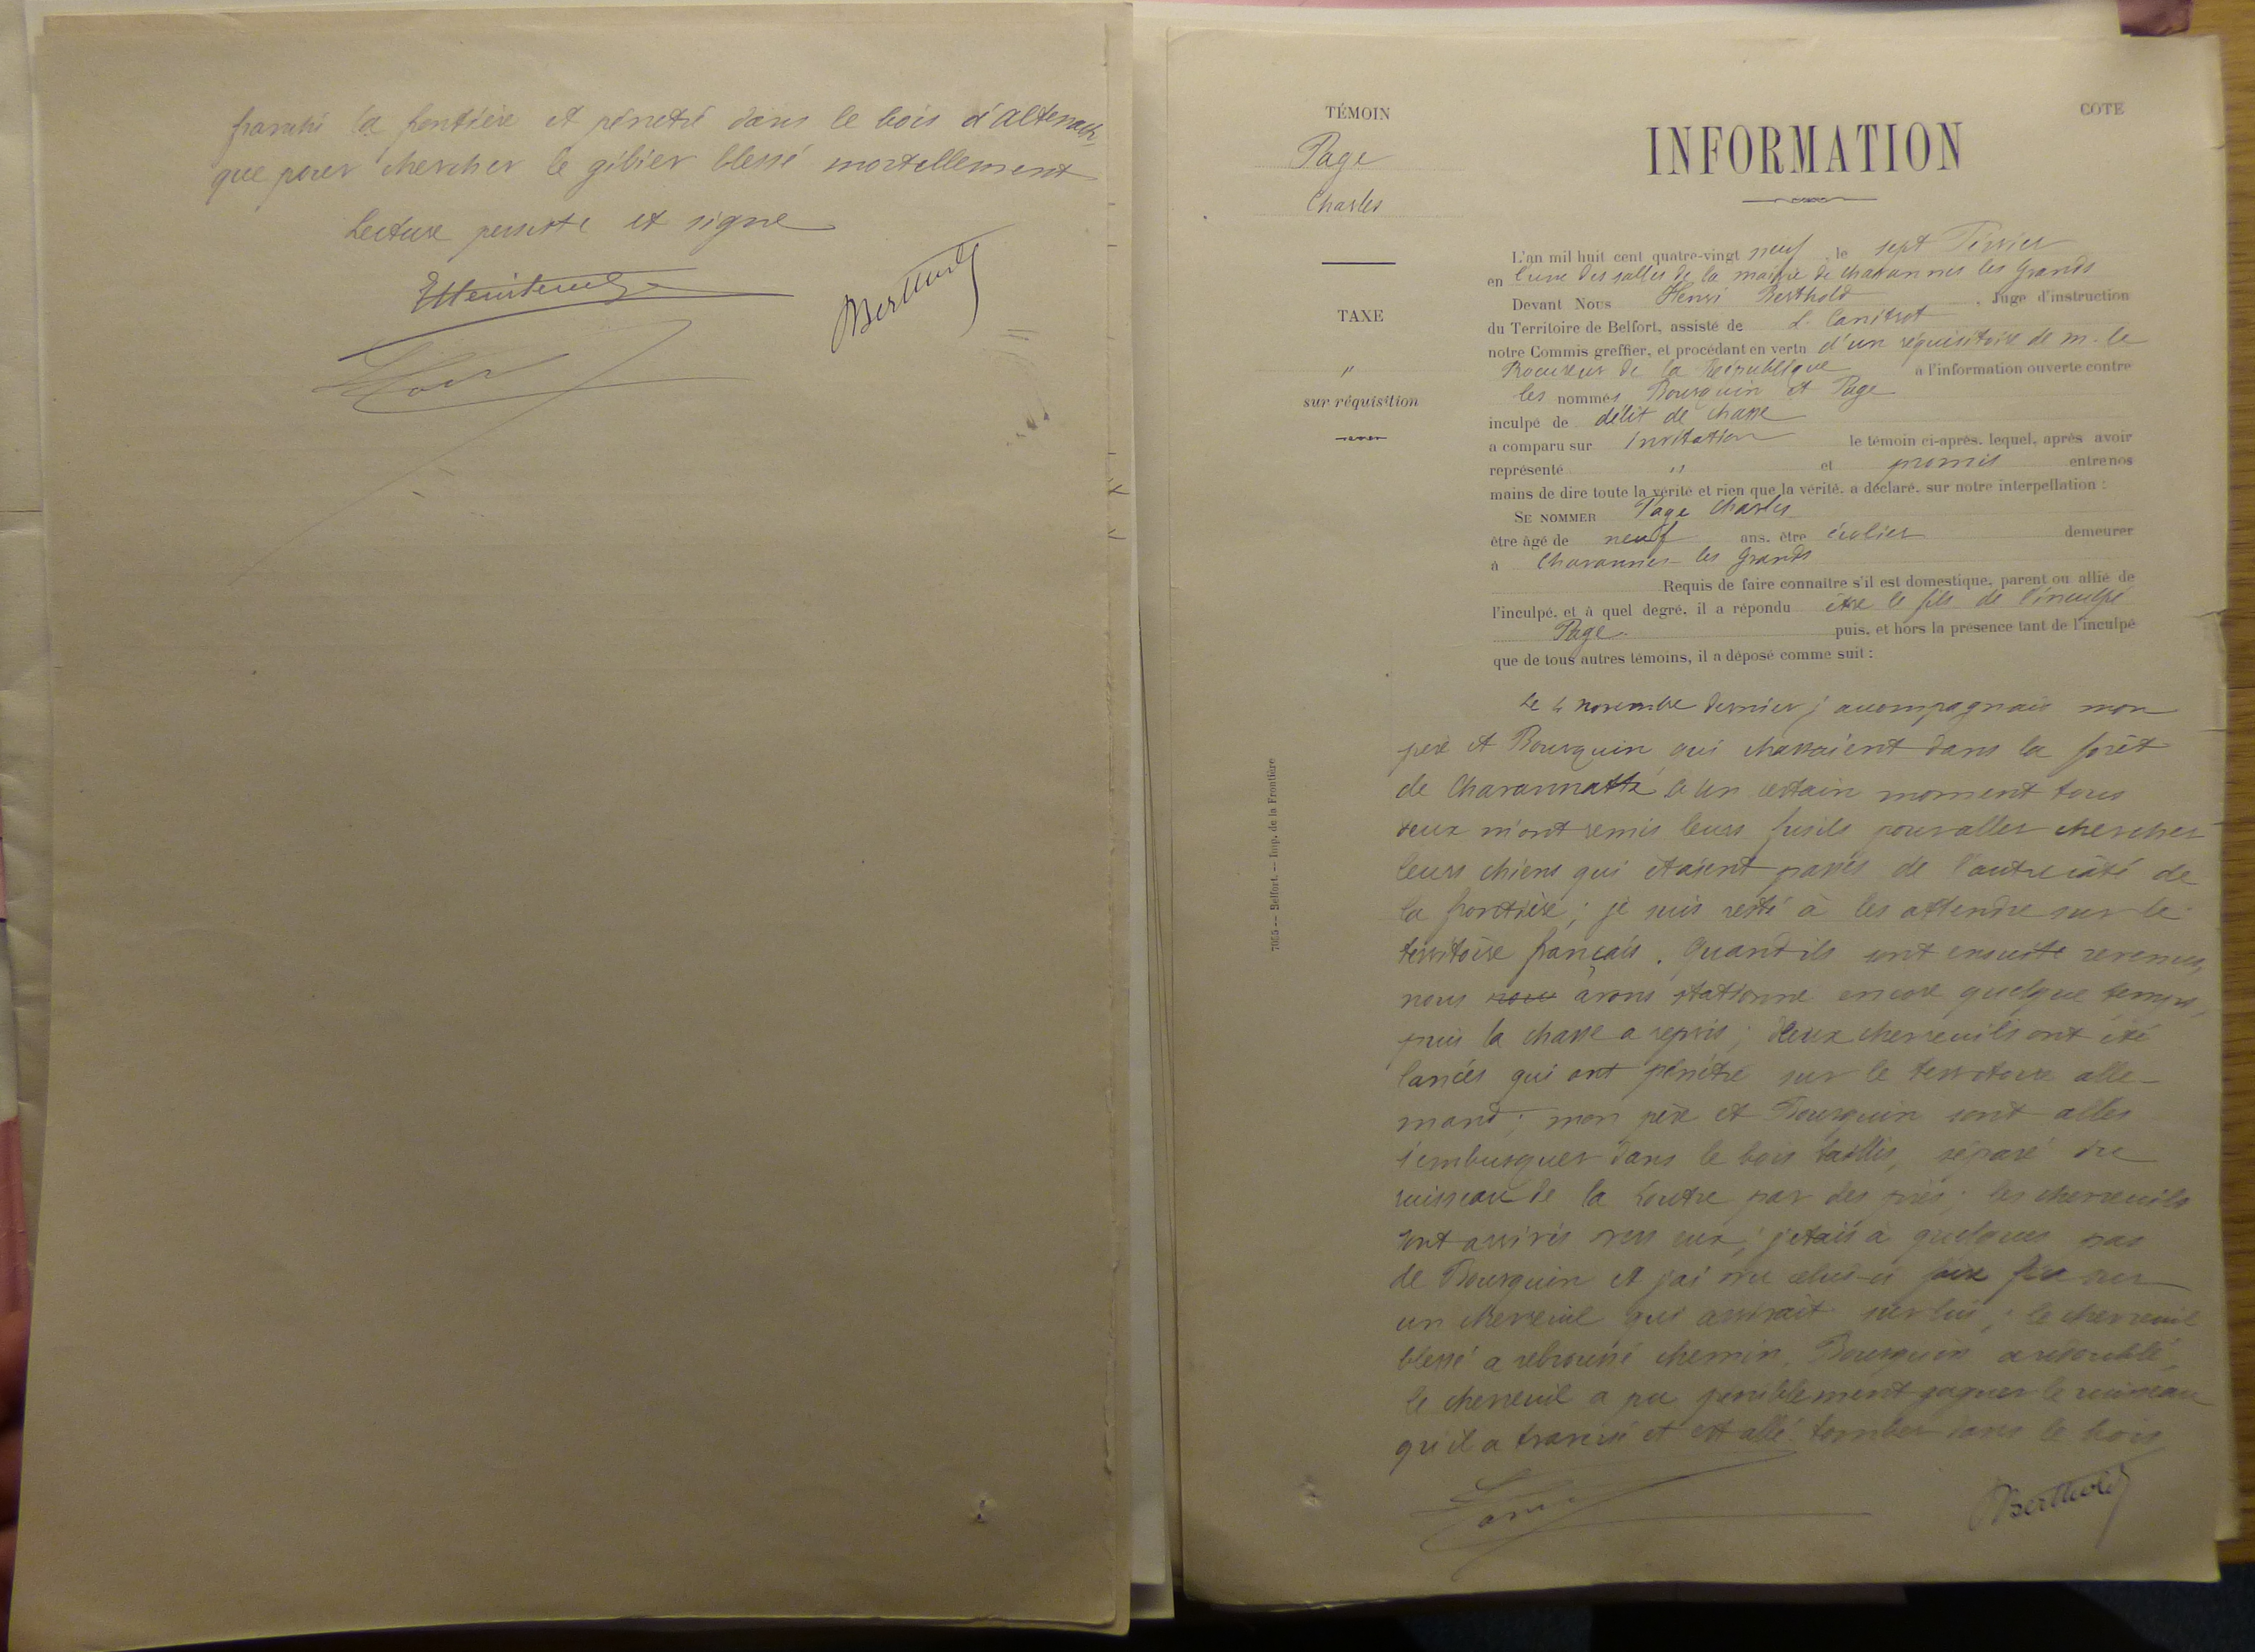 franchi la frontière et pénetré dans le bois d'altenach
que pour chercher le gibier blessé mortellement
Lecture persiste et signe
Berthold
TÉMOIN
Page
Charles
TAXE
"
sur réquisition
COTE
INFORMATION
L'an mil huit cent quatre-vingt neuf, le sept Février
en l'une des salles de la mairie de chavannes les Grands
Devant Nous Henri Berthold, Juge d'instruction
du Territoire de Belfort, assisté de L. Canitrot
notre Commis greffier, et procédant en vertu d'un réquisitoire de M. le
Procureur de la République à l'information ouverte contre
les nommés Bourquin et Page
inculpé de délit de chasse
a comparu sur invitation le témoin ci-après, lequel, après avoir
représenté " et promis entre nos
mains de dire toute la vérité et rien que la vérité, a déclaré, sur notre interpellation :
SE NOMMER Page Charles
être âgé de neuf ans, être écolier demeurer
à Chavannes-les Grands
Requis de faire connaître s'il est domestique, parent ou allié de
l'inculpé, et à quel degré, il a répondu être le fils de l'inculpé
Page. puis, et hors la présence tant de l'inculpé
que de tous autres témoins, il a déposé comme suit :
Le 4 novembre dernier j'accompagnais mon
père et Bourquin qui chassaient dans la forêt
de Chavannatte à un certain moment tous
deux m'ont remis leurs fusils pour aller chercher
leurs chiens qui étaient passés de l'autre côté de
la frontière ; je suis resté à les attendre sur le
territoire français. Quand ils sont ensuite revenus,
nous nous avons stationné encore quelque temps,
puis la chasse a repris ; deux chevreuils ont été
lancés qui ont pénétré sur le territoire alle-
mand ; mon père et Bourquin sont allés
s'embusquer dans le bois taillis, séparé du
ruisseau de la Loutre par des prés ; les chevreuils
sont arrivés vers eux ; j'étais à quelques pas
de Bourquin et j'ai vu celui-ci faire feu sur
un chevreuil qui arrivait sur lui ; le chevreuil
blessé a rebroussé chemin, Bourquin a redoublé,
le chevreuil a pu péniblement gagner le ruisseau
qu'il a franchi et est allé tomber dans le bois
Berthold
7055 -- Belfort. -- Imp. de la Frontière